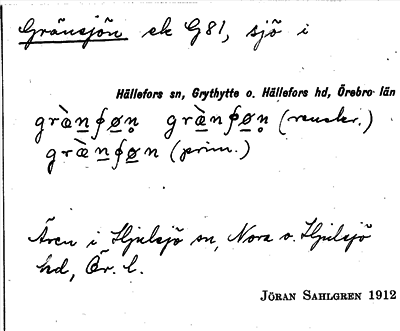 Gränsjön ek G81, sjö i
Hällefors sn, Grythytte o. Hällefors hd, Örebro län
græ̀n̲ʃø̲n̥ græ̲̀nʃø̲n̥ (renskr.)
græ̲̀n̲ʃø̲n (prim.)
Även i Hjulsjö sn, Nora o. Hjulsjö
hd, Ör. l.
JÖRAN SAHLGREN 1912